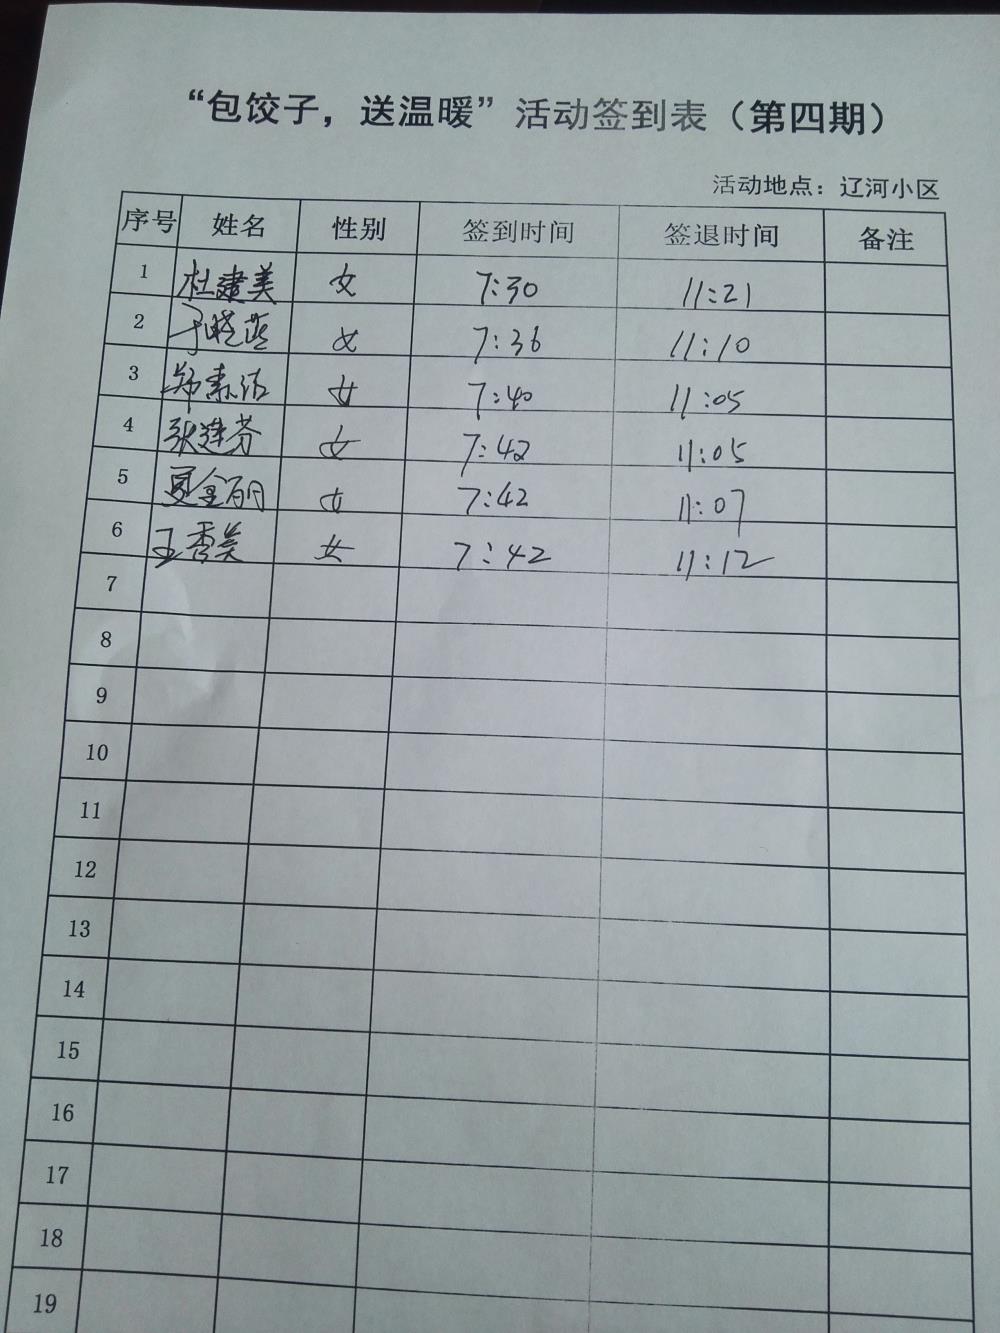 “包饺子，送温暖”活动签到表（第四期）
活动地点：辽河小区
序号 姓名 性别 签到时间 签退时间 备注
1 杜建美 女 7:30 11:21
2 于晓燕 女 7:36 11:10
3 郑素洁 女 7:40 11:05
4 张建芬 女 7:42 11:05
5 夏金丽 女 7:42 11:07
6 王秀美 女 7:42 11:12
7
8
9
10
11
12
13
14
15
16
17
18
19